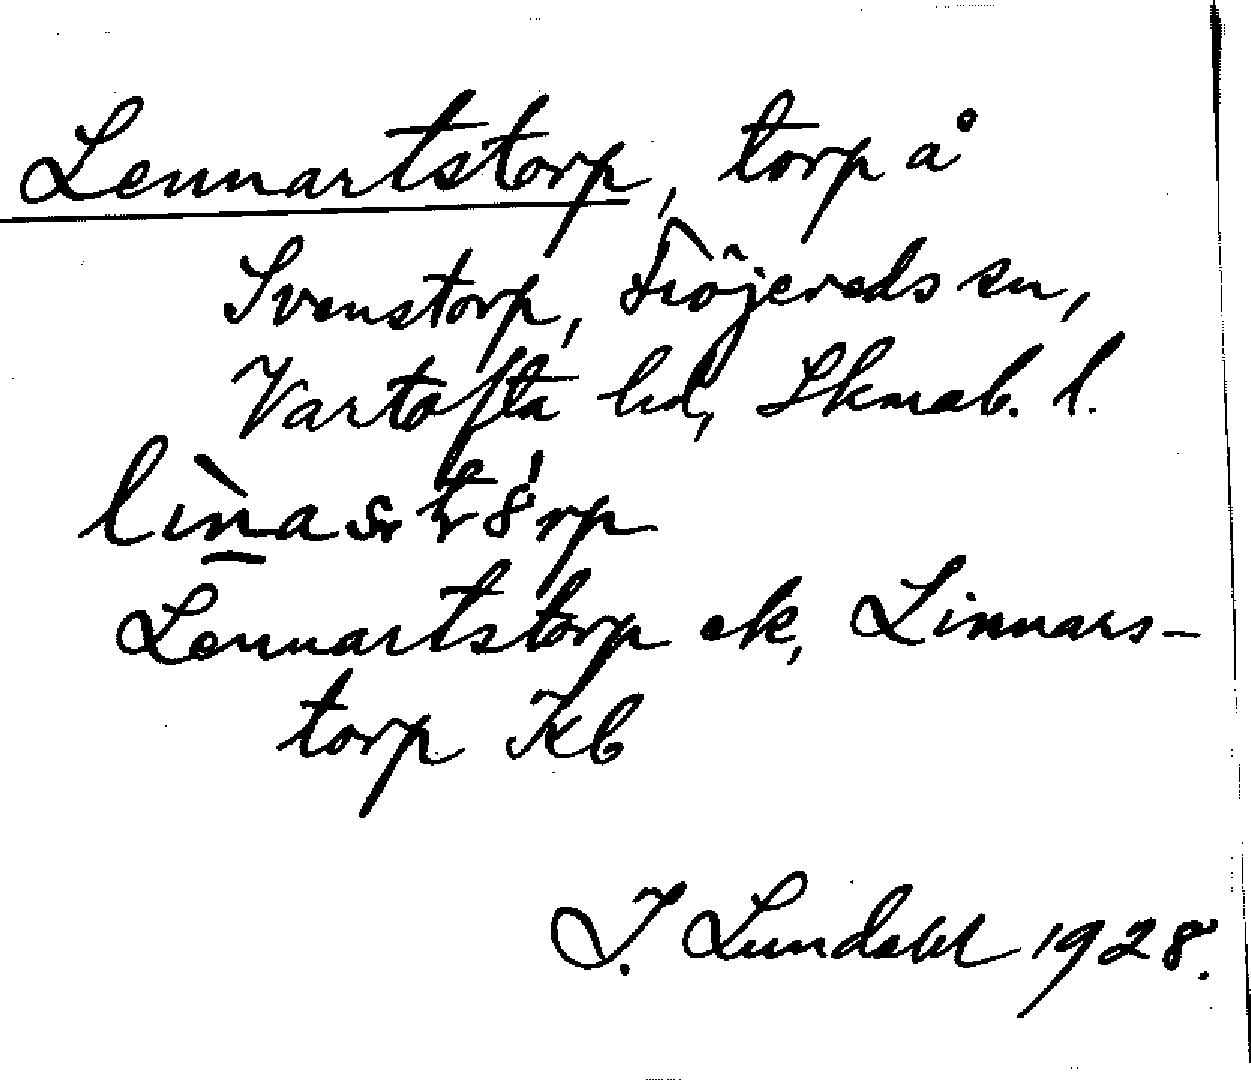 Lennartstorp, torp å
Svenstorp, Fröjereds sn,
Vartofta hd, Skarab. l.
Lennartstorp ek, Linnars-
torp Kb
I. Lundahl 1928.